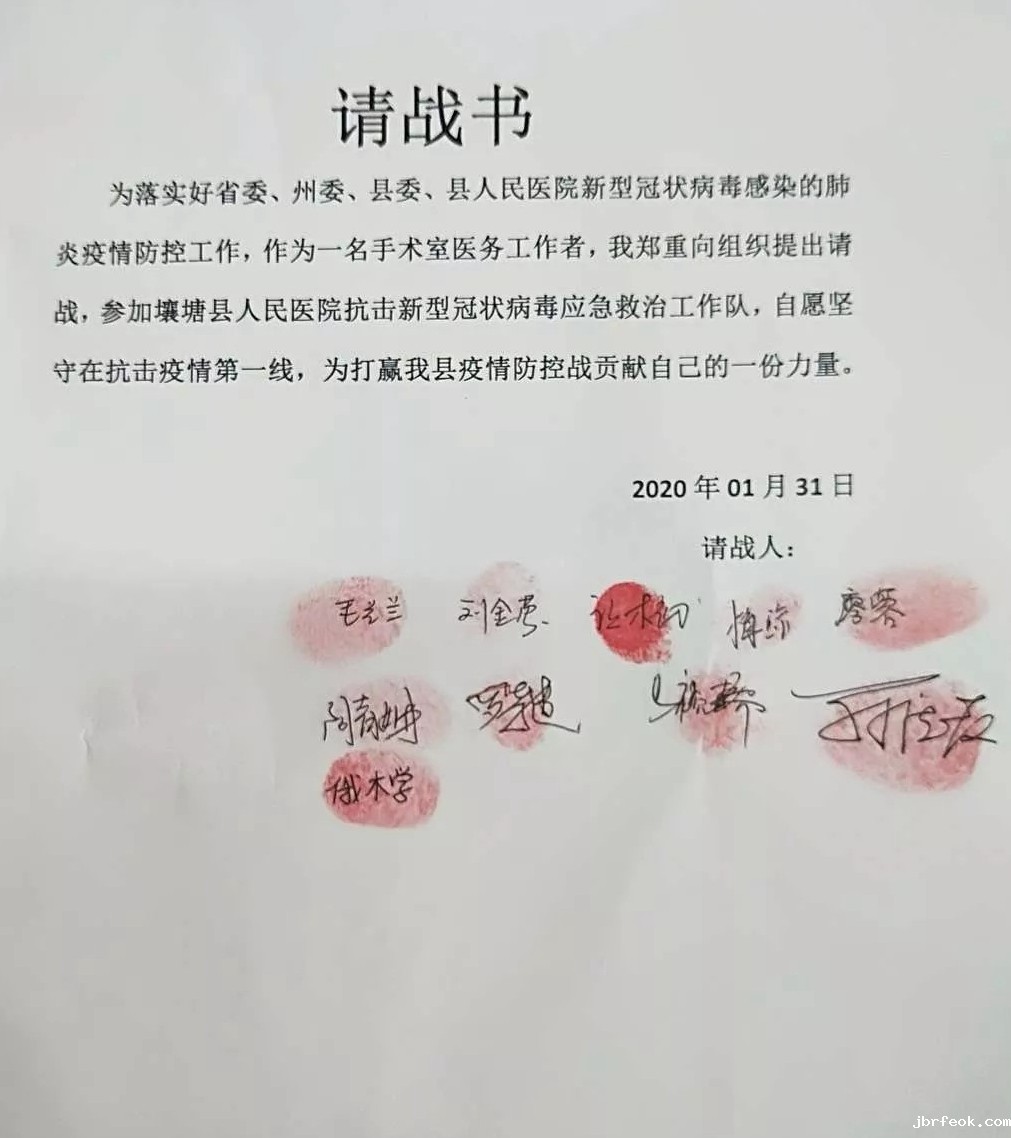 请战书
为落实好省委、州委、县委、县人民医院新型冠状病毒感染的肺
炎疫情防控工作，作为一名手术室医务工作者，我郑重向组织提出请
战，参加壤塘县人民医院抗击新型冠状病毒应急救治工作队，自愿坚
守在抗击疫情第一线，为打赢我县疫情防控战贡献自己的一份力量。
2020 年 01 月 31 日
请战人：
刘全英 廖蓉
俄木学
jbrfeok.com